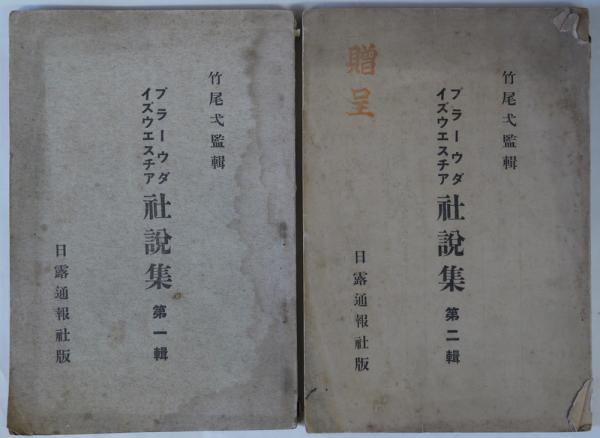 竹尾弌監輯
プラーウダ
イズウエスチア
社說集 第一輯
日露通報社版
贈呈
竹尾弌監輯
プラーウダ
イズウエスチア
社說集 第二輯
日露通報社版